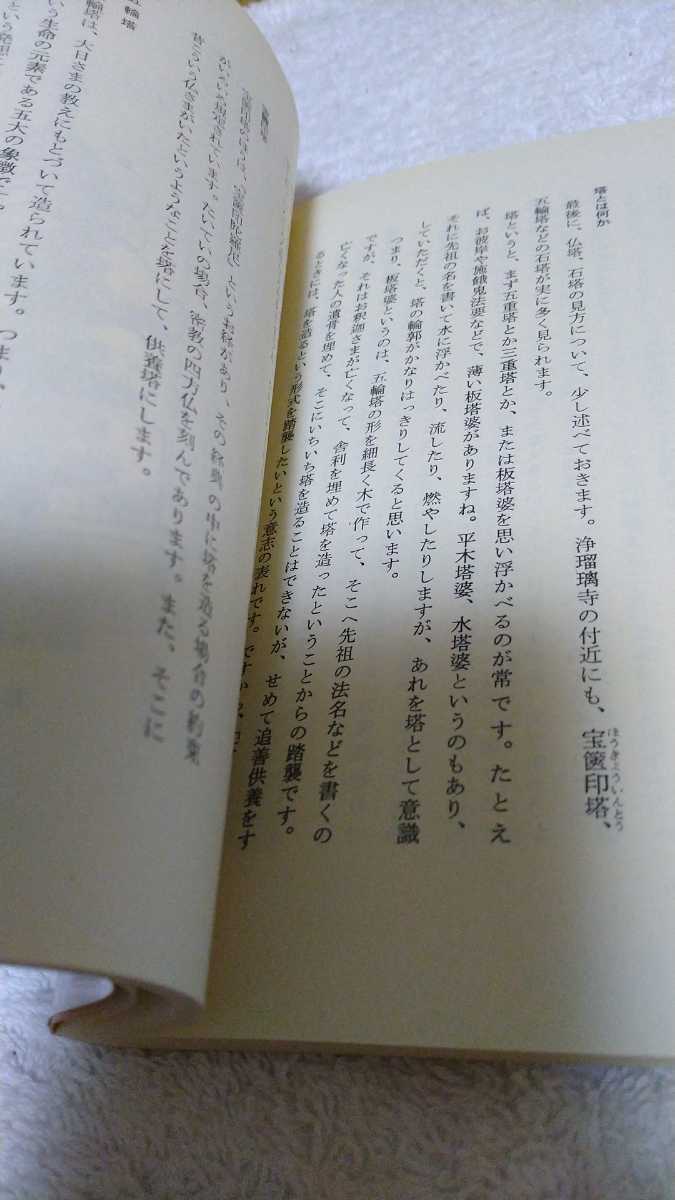 塔とは何か
最後に、仏塔、石塔の見方について、少し述べておきます。浄瑠璃寺の付近にも、宝篋印塔、
ほうきょういんとう
五輪塔などの石塔が実に多く見られます。
塔というと、まず五重塔とか三重塔とか、または板塔婆を思い浮かべるのが常です。たとえ
ば、お彼岸や施餓鬼法要などで、薄い板塔婆がありますね。平木塔婆、水塔婆というのもあり、
それに先祖の名を書いて水に浮かべたり、流したり、燃やしたりしますが、あれを塔として意識
していただくと、塔の輪郭がかなりはっきりしてくると思います。
つまり、板塔婆というのは、五輪塔の形を細長く木で作って、そこへ先祖の法名などを書くの
ですが、それはお釈迦さまが亡くなって、舎利を埋めて塔を造ったということからの踏襲です。
亡くなった人の遺骨を埋めて、そこにいちいち塔を造ることはできないが、せめて追善供養をす
るときには、塔を造るという形式を踏襲したいという意志の表れです。ですから、
というお経があり、その経典の中に塔を造る場合の約束
がいろいろ規定されています。たいていの場合、密教の四方仏を刻んであります。また、そこに
昔こういう仏さまがいたというようなことを塔にして、供養塔にします。
五輪塔
輪塔は、大日さまの教えにもとづいて造られています。つまり、
いう生命の元素である五大の象徴です。
という発想